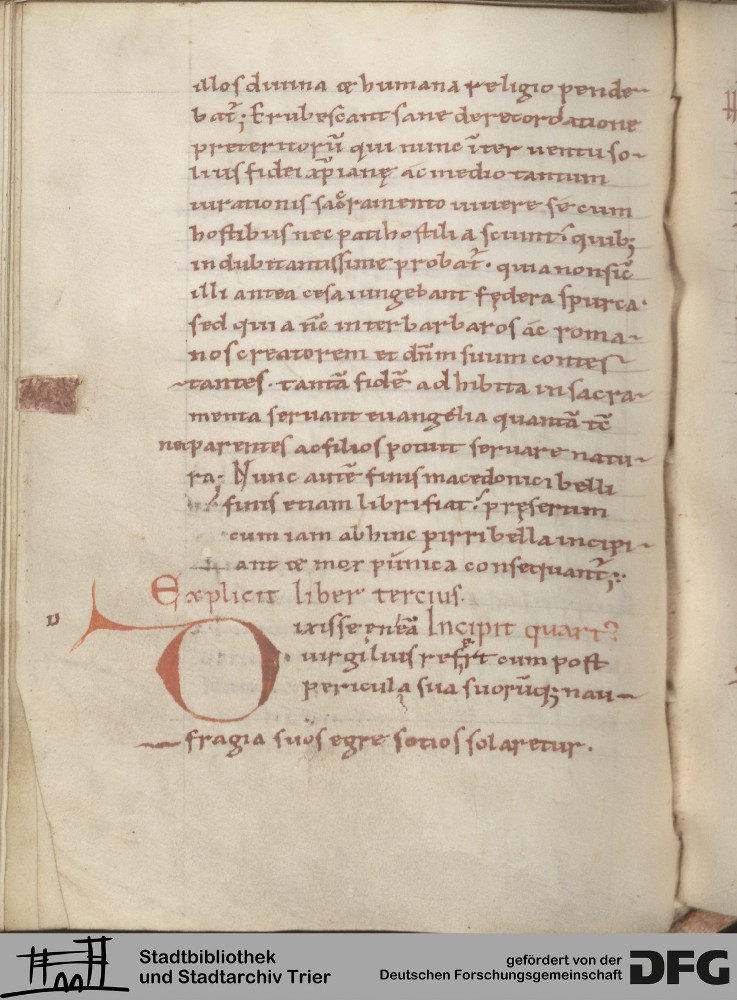 illos diuina & humana religio pende-
bat̃; Erubescant sane de recordatione
preteritorũ qui nunc ĩter uentu so-
lius fidei xp̃ianę ac medio tantum
iurationis sacramento uiuere se cum
hostibus nec pati hostilia sciunt. quib;
indubitantissime probat̃. quia non sic̃
illi antea cesa iungebant fędera spurca.
sed quia ñc inter barbaros ac roma-
nos creatorem et dñm suum contes-
tantes. tantã fidẽ adhibita in sacra-
menta seruant euangelia quantã tc̃
nec parentes ac filios potuit seruare natu-
ra; Nunc autẽ finis macedonici belli
finis etiam libri fiat. pręsertim
cum iam abhinc pirri bella incipi-
ant & mox pũnica consequant̃;
Explicit liber tercius.
D
ixisse eneã Incipit quart9
uirgilius refert cum post
pericula sua suorũq; nau-
fragia suos egre sotios solaretur.
Stadtbibliothek
und Stadtarchiv Trier
gefördert von der
Deutschen Forschungsgemeinschaft
DFG